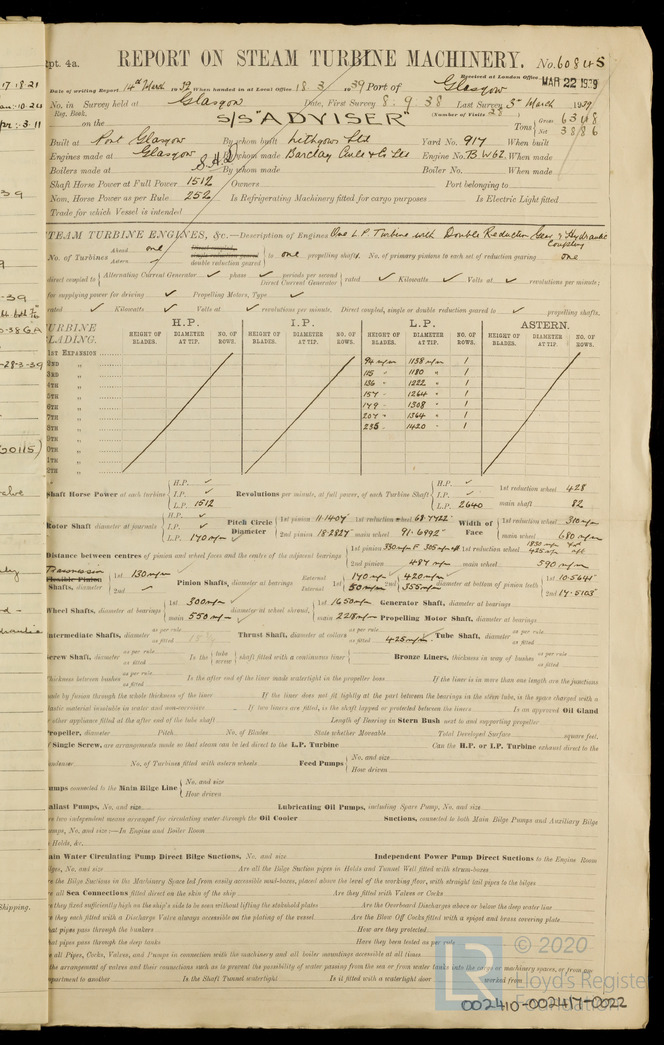 Rpt. 4a. REPORT ON STEAM TURBINE MACHINERY. No. 60845
Received at London Office MAR 22 1939
Date of writing Report 14th March 1939 When handed in at Local Office 18 3 1939 Port of Glasgow
No. in Survey held at Glasgow Date, First Survey 8. 9. 38 Last Survey 3rd March 1939
Reg. Book. (Number of Visits 28)
on the S/S "ADVISER" Tons Gross 6348 Net 3886
Built at Port Glasgow By whom built Lithgows Ltd Yard No. 917 When built
Engines made at Glasgow By whom made Barclay Curle & Co Ltd Engine No. When made
Boilers made at By whom made Boiler No. When made
Shaft Horse Power at Full Power 1512 Owners Port belonging to
Nom. Horse Power as per Rule 252 Is Refrigerating Machinery fitted for cargo purposes Is Electric Light fitted
Trade for which Vessel is intended
STEAM TURBINE ENGINES, &c.—Description of Engines One L.P. Turbine with Double Reduction Gear & Hydraulic Coupling
No. of Turbines Ahead one Astern ✓ direct coupled, single reduction geared, double reduction geared to one propelling shafts. No. of primary pinions to each set of reduction gearing one
direct coupled to Alternating Current Generator ✓ phase ✓ periods per second Direct Current Generator rated ✓ Kilowatts ✓ Volts at ✓ revolutions per minute;
for supplying power for driving ✓ Propelling Motors, Type ✓
rated ✓ Kilowatts ✓ Volts at ✓ revolutions per minute. Direct coupled, single or double reduction geared to ✓ propelling shafts.
TURBINE BLADING. H.P. I.P. L.P. ASTERN.
HEIGHT OF BLADES. DIAMETER AT TIP. NO. OF ROWS. HEIGHT OF BLADES. DIAMETER AT TIP. NO. OF ROWS. HEIGHT OF BLADES. DIAMETER AT TIP. NO. OF ROWS. HEIGHT OF BLADES. DIAMETER AT TIP. NO. OF ROWS.
1st EXPANSION 94 m/m 1138 m/m 1
2ND " 115 " 1180 " 1
3RD " 136 " 1222 " 1
4TH " 157 " 1264 " 1
5TH " 179 " 1308 " 1
6TH " 207 " 1364 " 1
7TH " 235 " 1420 " 1
8TH "
9TH "
0TH "
1TH "
2TH "
Shaft Horse Power at each turbine H.P. ✓ I.P. ✓ L.P. 1512 Revolutions per minute, at full power, of each Turbine Shaft H.P. ✓ I.P. ✓ L.P. 2640 1st reduction wheel 428 main shaft 82
Rotor Shaft diameter at journals H.P. ✓ I.P. ✓ L.P. 170 m/m Pitch Circle Diameter 1st pinion 11.1407 1st reduction wheel 68.7722 2nd pinion 18.2827 main wheel 91.6992 Width of Face 1st reduction wheel 310 m/m main wheel 680 m/m
Distance between centres of pinion and wheel faces and the centre of the adjacent bearings 1st pinion 1st reduction wheel 2nd pinion 487 m/m main wheel 590 m/m
Flexible Pinion Shafts, diameter 1st 130 m/m 2nd ✓ Pinion Shafts, diameter at bearings External 170 m/m Internal 50 m/m 1st 420 m/m 2nd 355 m/m diameter at bottom of pinion teeth 1st 10.5641 2nd 17.5103
Wheel Shafts, diameter at bearings 1st 300 m/m main 550 m/m diameter at wheel shroud, 1st 1650 m/m main 2218 m/m Generator Shaft, diameter at bearings Propelling Motor Shaft, diameter at bearings
Intermediate Shafts, diameter as per rule as fitted Thrust Shaft, diameter at collars as per rule as fitted 425 m/m Tube Shaft, diameter as per rule as fitted
Screw Shaft, diameter as per rule as fitted Is the tube screw shaft fitted with a continuous liner Bronze Liners, thickness in way of bushes as per rule as fitted
Thickness between bushes as per rule as fitted Is the after end of the liner made watertight in the propeller boss If the liner is in more than one length are the junctions
made by fusion through the whole thickness of the liner If the liner does not fit tightly at the part between the bearings in the stern tube, is the space charged with a
plastic material insoluble in water and non-corrosive If two liners are fitted, is the shaft lapped or protected between the liners Is an approved Oil Gland
or other appliance fitted at the after end of the tube shaft Length of Bearing in Stern Bush next to and supporting propeller
Propeller, diameter Pitch No. of Blades State whether Moveable Total Developed Surface square feet.
If Single Screw, are arrangements made so that steam can be led direct to the L.P. Turbine Can the H.P. or I.P. Turbine exhaust direct to the
Condenser No. of Turbines fitted with astern wheels Feed Pumps No. and size How driven
Pumps connected to the Main Bilge Line No. and size How driven
Ballast Pumps, No. and size Lubricating Oil Pumps, including Spare Pump, No. and size
Are two independent means arranged for circulating water through the Oil Cooler Suctions, connected to both Main Bilge Pumps and Auxiliary Bilge
Pumps, No. and size:—In Engine and Boiler Room
In Holds, &c.
Main Water Circulating Pump Direct Bilge Suctions, No. and size Independent Power Pump Direct Suctions to the Engine Room
Bilges, No. and size Are all the Bilge Suction pipes in Holds and Tunnel Well fitted with strum-boxes
Are the Bilge Suctions in the Machinery Space led from easily accessible mud-boxes, placed above the level of the working floor, with straight tail pipes to the bilges
Are all Sea Connections fitted direct on the skin of the ship Are they fitted with Valves or Cocks
Are they fixed sufficiently high on the ship's side to be seen without lifting the stokehold plates Are the Overboard Discharges above or below the deep water line
Are they each fitted with a Discharge Valve always accessible on the plating of the vessel Are the Blow Off Cocks fitted with a spigot and brass covering plate
What pipes pass through the bunkers How are they protected
What pipes pass through the deep tanks Have they been tested as per rule
Are all Pipes, Cocks, Valves, and Pumps in connection with the machinery and all boiler mountings accessible at all times
Is the arrangement of valves and their connections such as to prevent the possibility of water passing from the sea or from water tanks into the cargo or machinery spaces, or from one
compartment to another Is the Shaft Tunnel watertight Is it fitted with a watertight door worked from
© 2020
Lloyd's Register
Foundation
002410-002417-0022